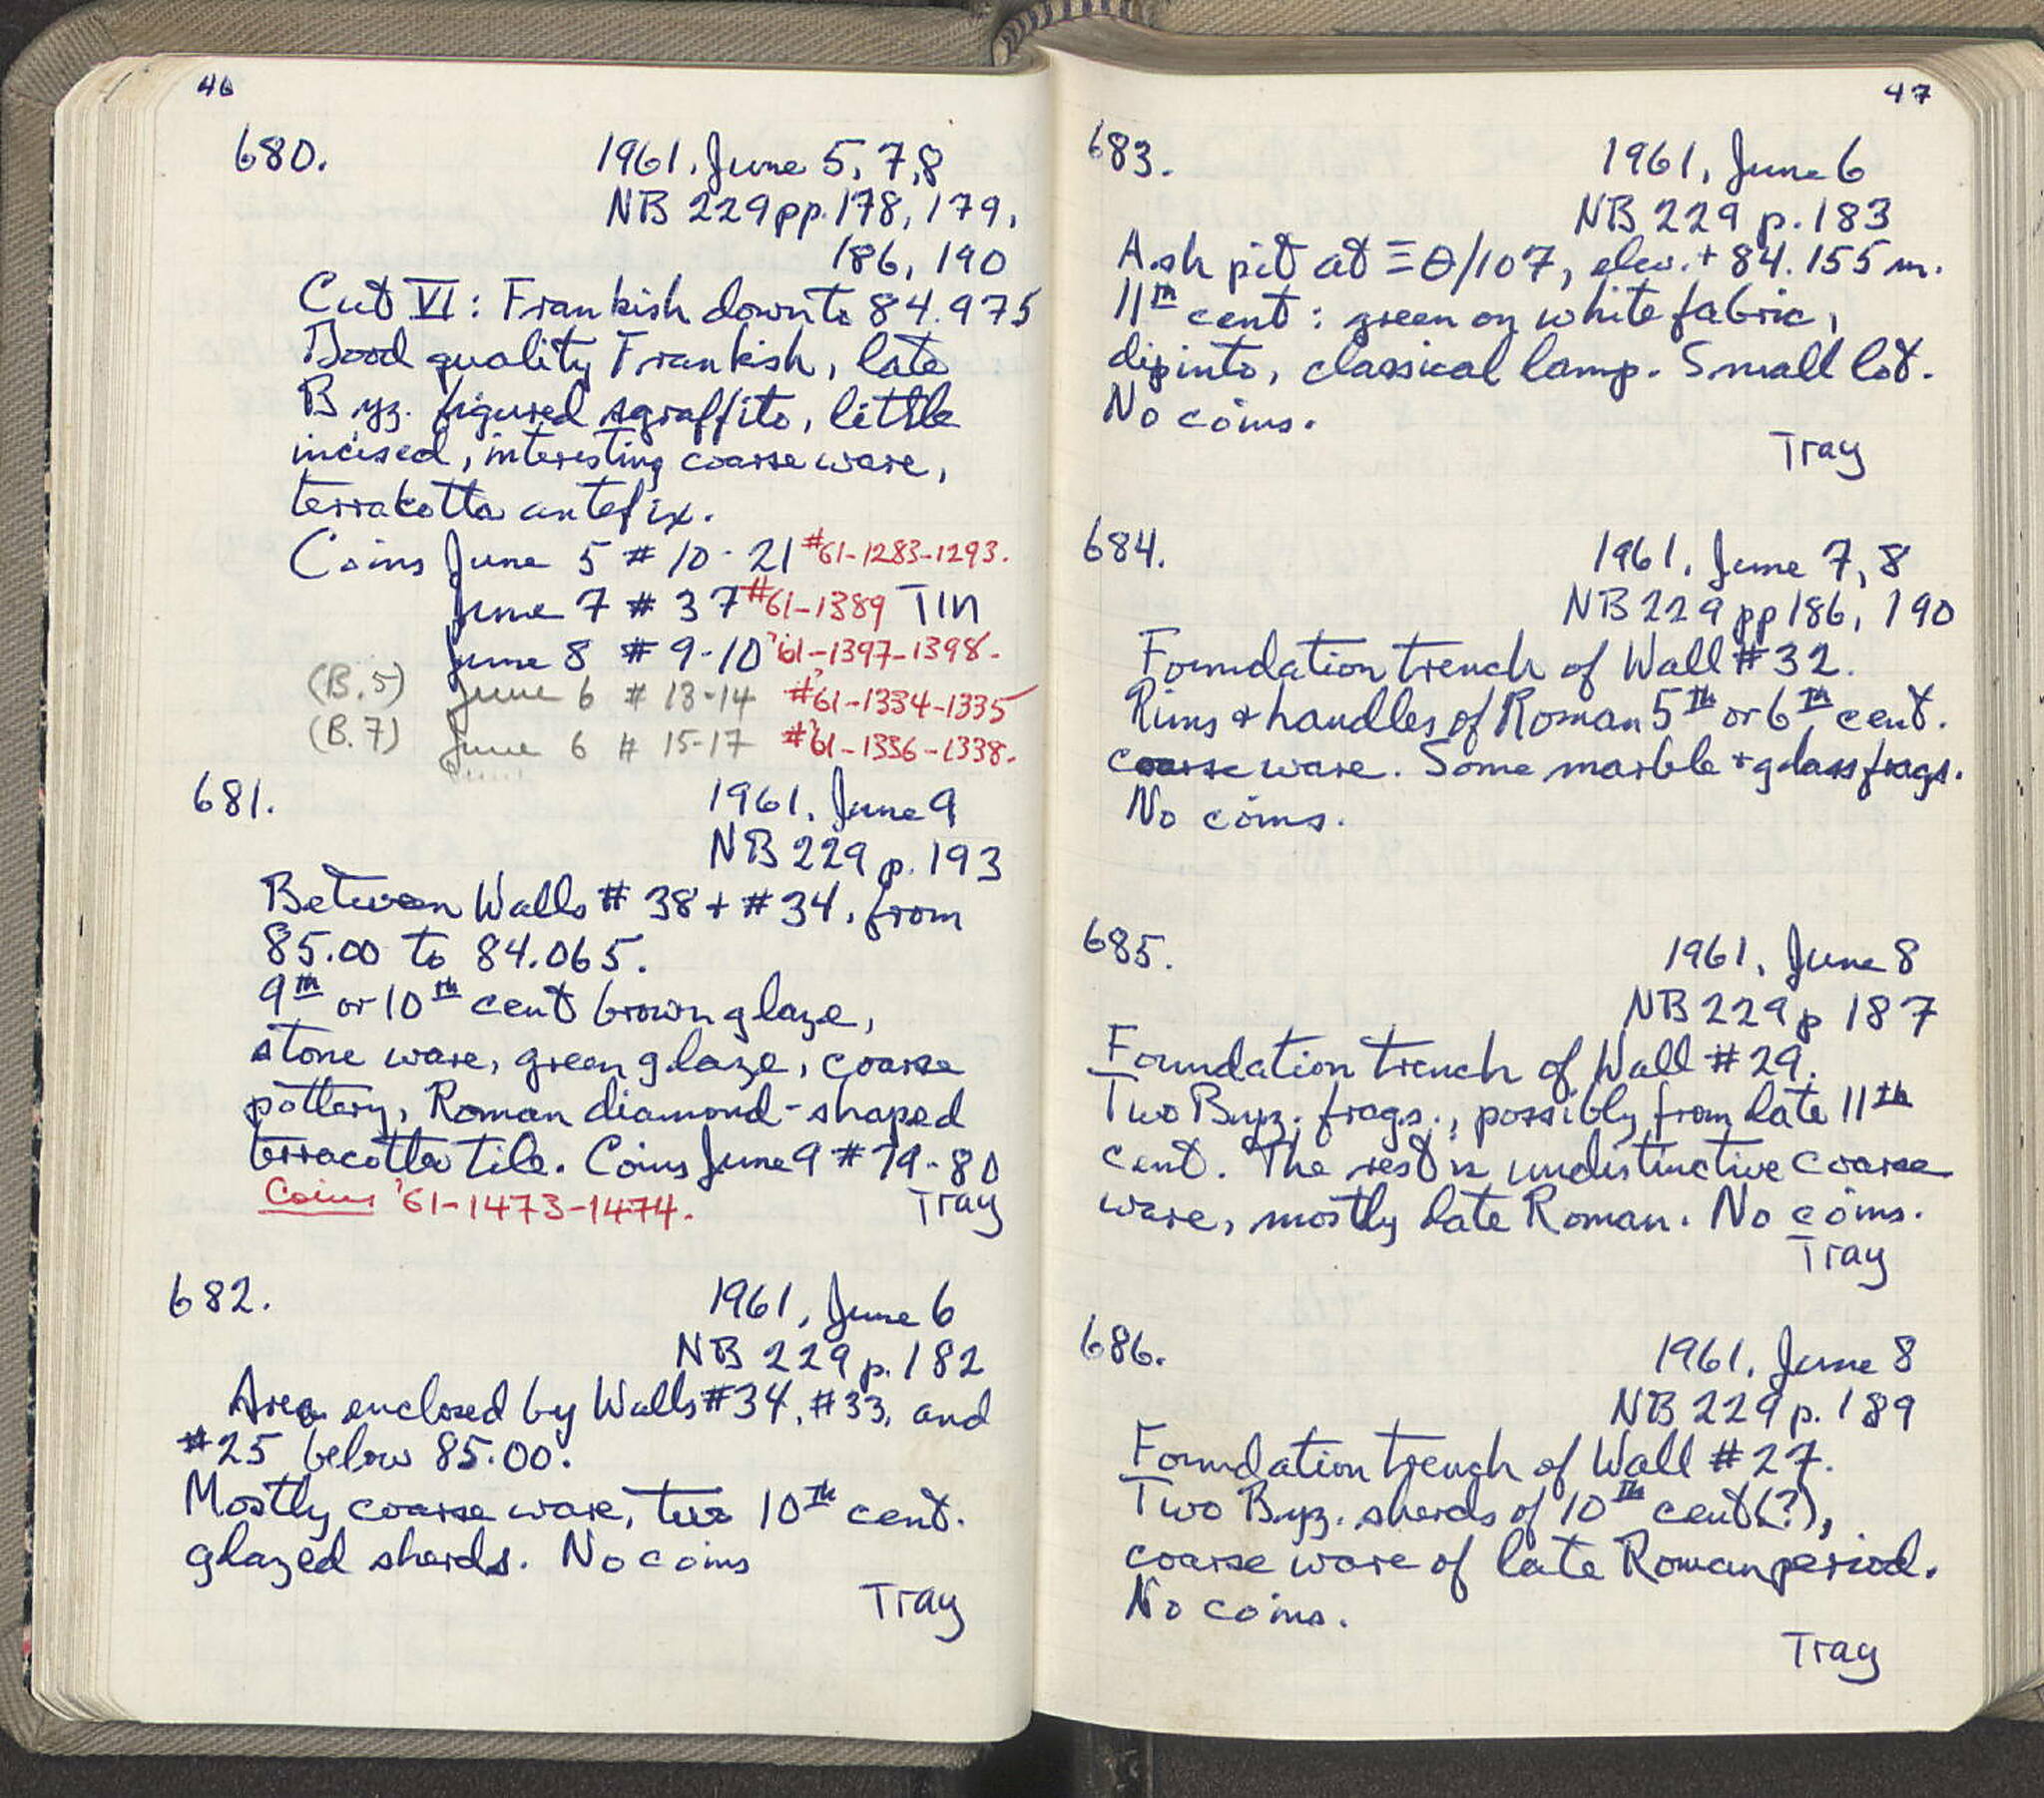 46
680.
1961, June 5, 7,8
NB 229 pp. 178, 179,
186, 190
Cut VI: Frankish down to 84.975
Good quality Frankish, late
Byz. figured sgraffito, little
incised, interesting coarse ware,
terracotta antefix.
Coins June 5 # 10-21 #61-1283-1293.
June 7 # 37 #61-1389 TIN
June 8 # 9-10 '61-1397-1398.
(B.5) June 6 # 13-14 #'61-1334-1335
(B.7) June 6 # 15-17 #'61-1336-1338.
681.
1961, June 9
NB 229 p. 193
Between Walls # 38 + # 34, from
85.00 to 84.065.
9th or 10th cent brown glaze,
stone ware, green glaze, coarse
pottery, Roman diamond-shaped
terracotta tile. Coins June 9 # 79-80
Coins '61-1473-1474.
Tray
682.
1961, June 6
NB 229 p. 182
Area enclosed by Walls #34, #33, and
#25 below 85.00.
Mostly coarse ware, two 10th cent.
glazed sherds. No coins
Tray
47
683.
1961, June 6
NB 229 p. 183
Ash pit at ΞΘ/107, elev. + 84.155 m.
11th cent: green on white fabric,
dipinto, classical lamp. Small lot.
No coins.
Tray
684.
1961, June 7, 8
NB 229 pp 186, 190
Foundation trench of Wall # 32.
Rims + handles of Roman 5th or 6th cent.
coarse ware. Some marble + glass frags.
No coins.
685.
1961, June 8
NB 229 p 187
Foundation trench of Wall # 29.
Two Byz. frags., possibly from late 11th
cent. The rest is undistinctive coarse
ware, mostly late Roman. No coins.
Tray
686.
1961, June 8
NB 229 p. 189
Foundation trench of Wall # 27.
Two Byz. sherds of 10th cent(?),
coarse ware of late Roman period.
No coins.
Tray